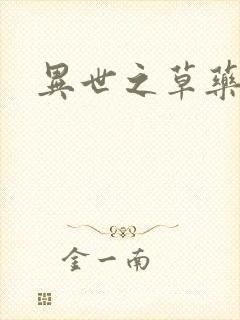 異世之草藥
金一南